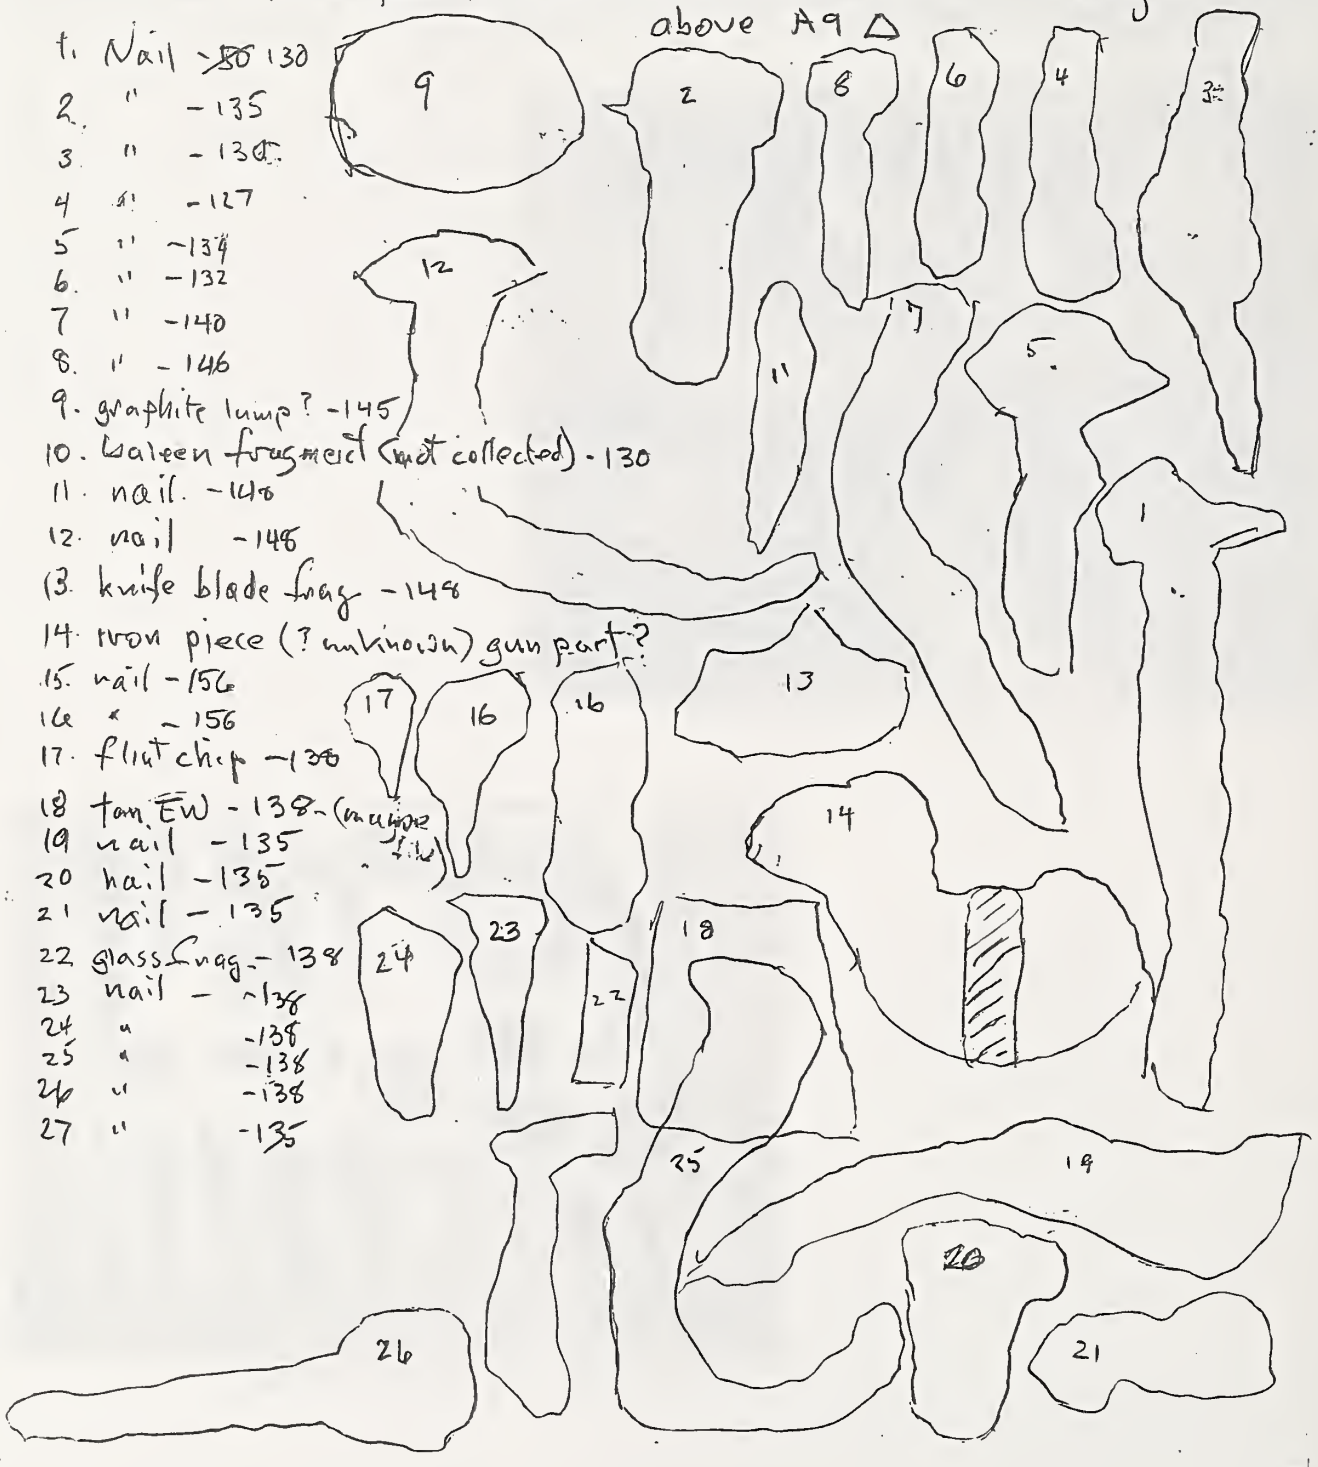 above A9 △
1. Nail - 130
2. " - 135
3 " - 130
4 " - 127
5 " - 134
6. " - 132
7 " - 140
8. " - 146
9. graphite lump? - 145
10. baleen fragment (not collected) - 130
11. nail. - 148
12. nail - 148
13. knife blade frag - 148
14. iron piece (? unknown) gun part?
15. nail - 156
16 " - 156
17. flint chip - 138
18 tan EW - 138 -
19 nail - 135
20 nail - 135
21 nail - 135
22 glass frag - 138
23 nail - 138
24 " - 138
25 " - 138
26 " - 138
27 " - 135
9
2
8
6
4
3
12
11
7
5
1
17
16
16
13
14
24
23
22
18
25
19
26
20
21